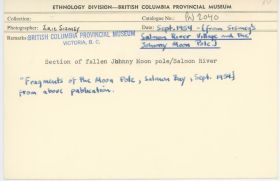 ETHNOLOGY DIVISION—BRITISH COLUMBIA PROVINCIAL MUSEUM
Collection: Catalogue No.: PN 2040
Photographer: Eric Sismey Date: Sept. 1954 - [from Sismey's
Remarks BRITISH COLUMBIA PROVINCIAL MUSEUM Salmon River Village and the
VICTORIA, B. C. Johnny Moon Pole]
Section of fallen Johnny Moon pole/Salmon River
"Fragments of the Moon Pole, Salmon Bay, Sept. 1954]
from above publication.